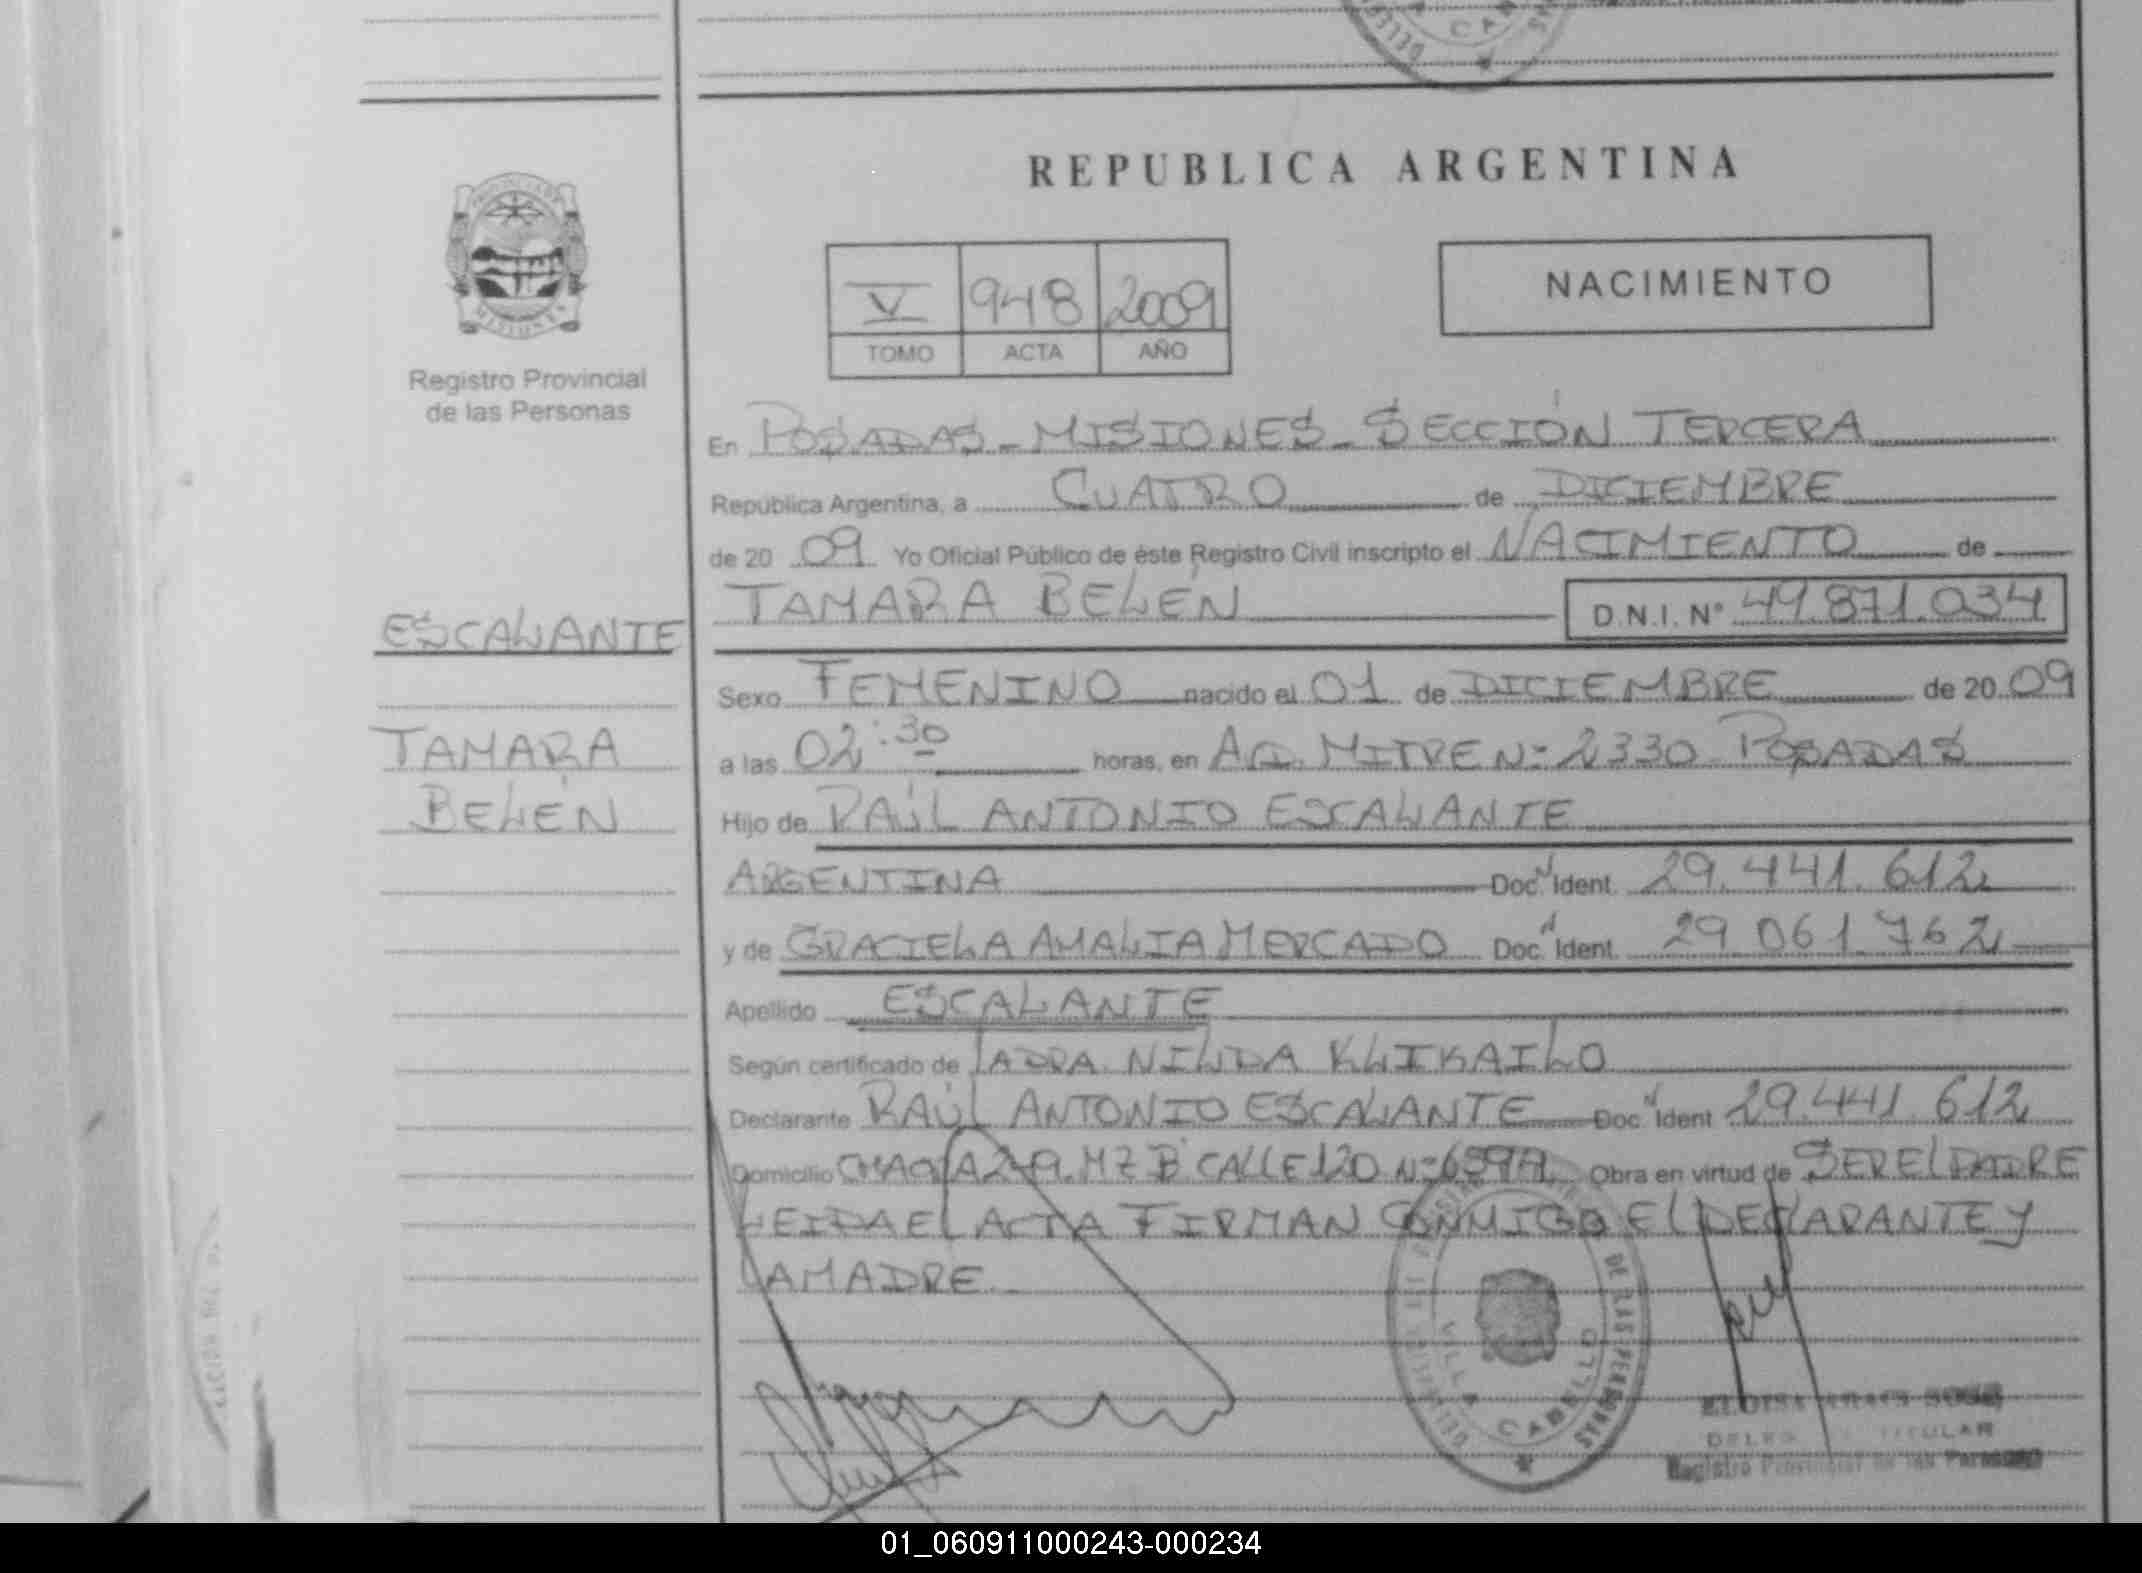 REPUBLICA ARGENTINA
NACIMIENTO
V 948 2009
TOMO ACTA AÑO
Registro Provincial
de las Personas
En POSADAS - MISIONES - SECCIÓN TERCERA
República Argentina, a CUATRO de DICIEMBRE
de 20 09 Yo Oficial Público de éste Registro Civil inscripto el NACIMIENTO de
TAMARA BELÉN D.N.I. Nº 49.871.034
ESCALANTE
TAMARA
BELÉN
Sexo FEMENINO nacido el 01 de DICIEMBRE de 20 09
a las 02:30 horas, en AV. MITRE Nº 2330 POSADAS
Hijo de RAÚL ANTONIO ESCALANTE
ARGENTINA Doc. Ident. 29.441.612
y de GRACIELA AMALIA MERCADO Doc. Ident. 29.061.762
Apellido ESCALANTE
Según certificado de LA DRA. NILDA KLIKAILO
Declarante RAÚL ANTONIO ESCALANTE Doc. Ident 29.441.612
Domicilio MZ B CALLE 120 Nº Obra en virtud de SER EL PADRE
LEIDA EL ACTA FIRMAN CONMIGO EL DECLARANTE Y
LA MADRE.
DE LAS PERSONAS
VILLA CABELLO
ELOISA
TITULAR
Registro Provincial de las Personas
01_060911000243-000234